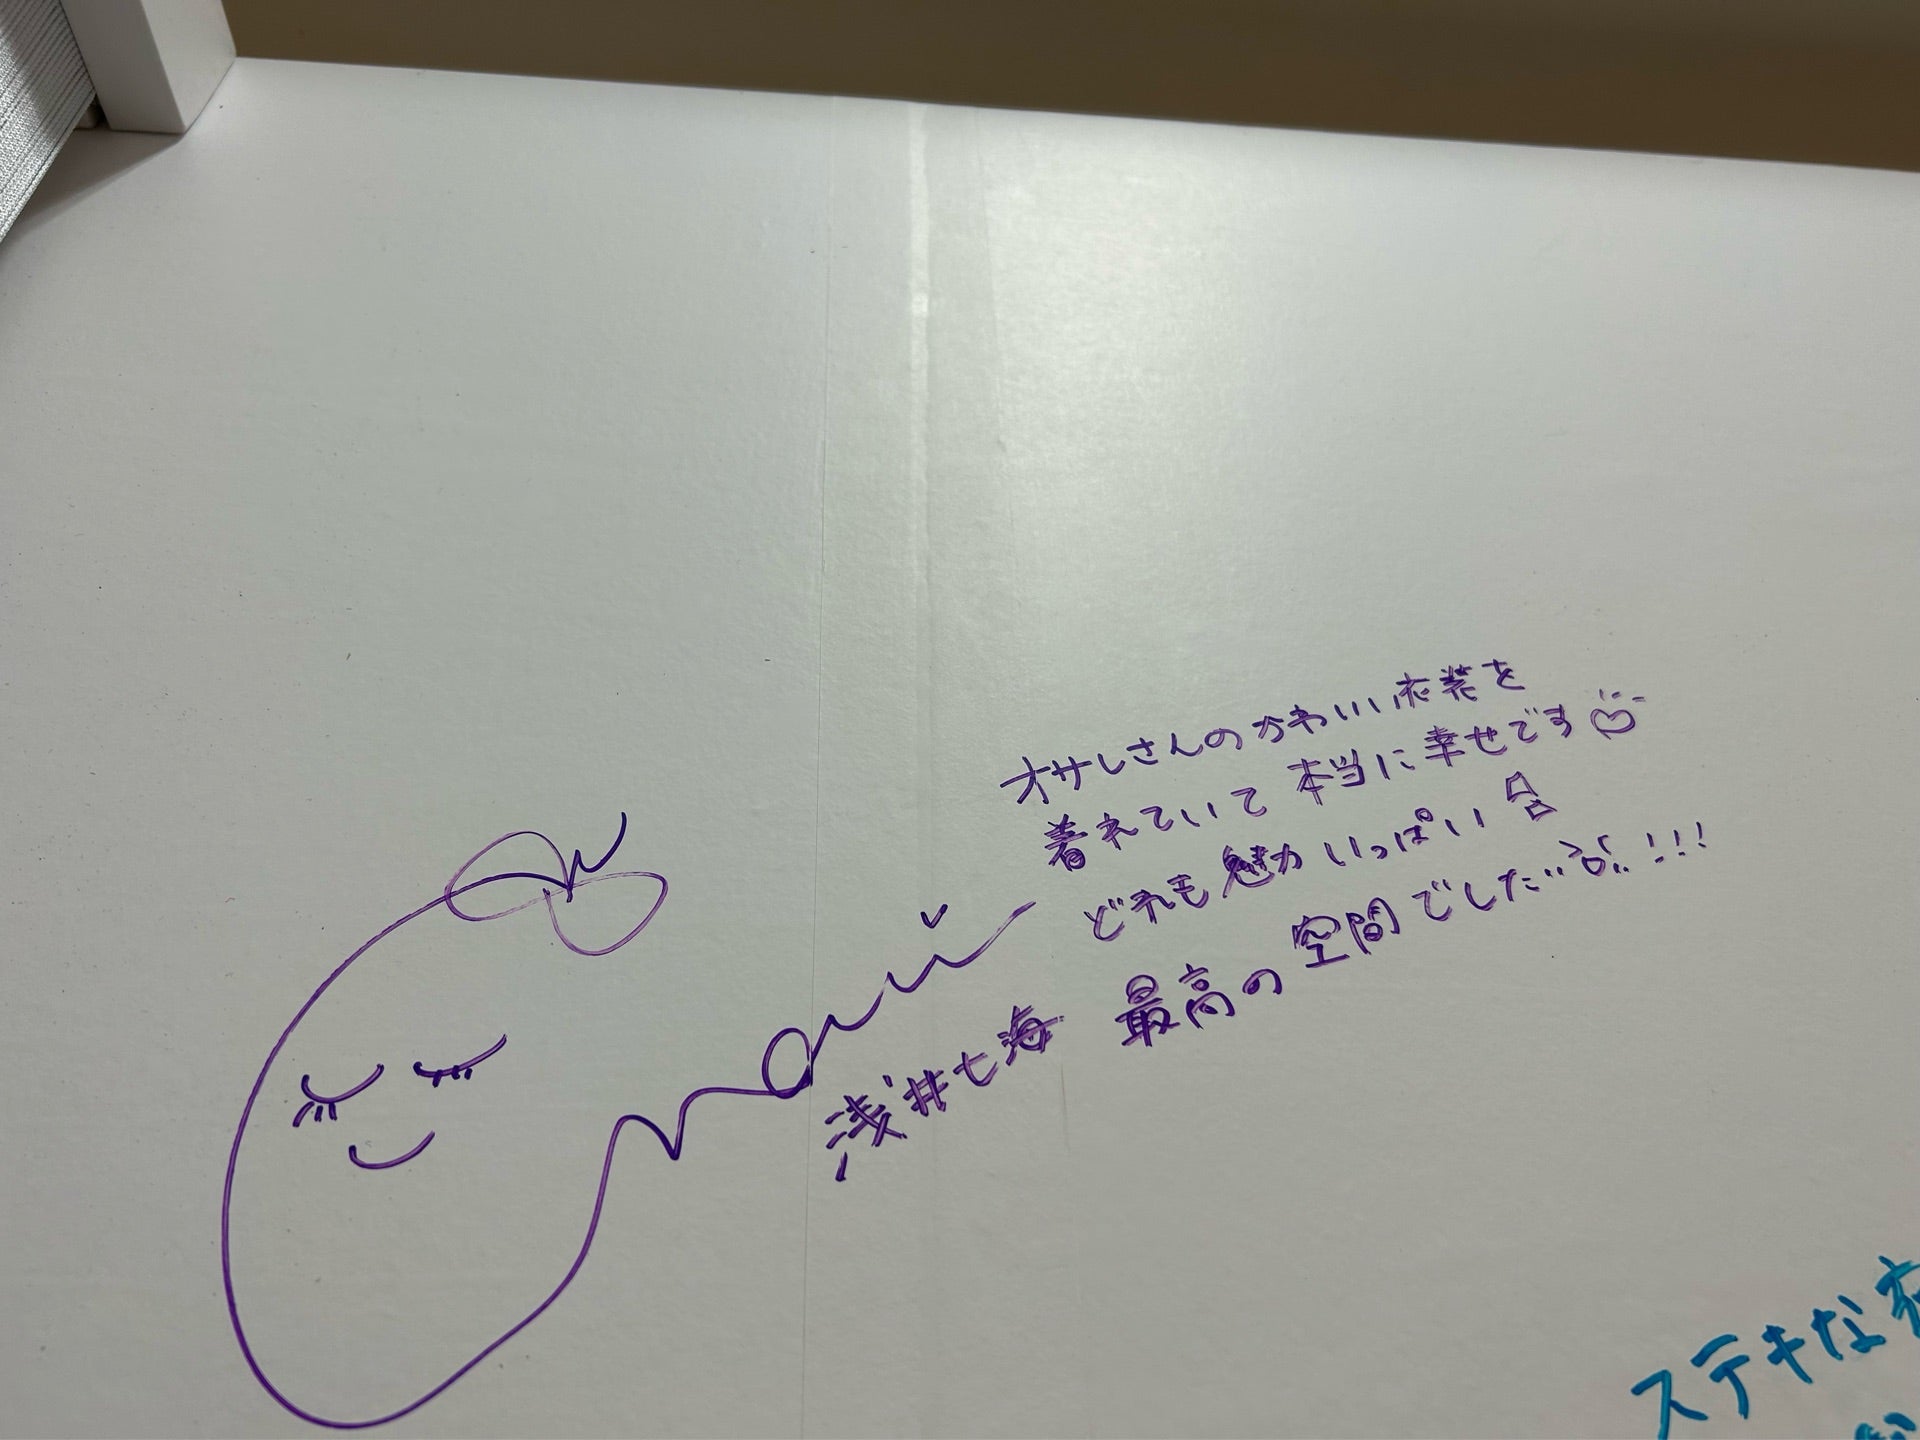 オサレさんのかわいい衣装を
着れていて本当に幸せです
どれも魅力いっぱい
最高の空間でした!!!
浅井七海
ステキな